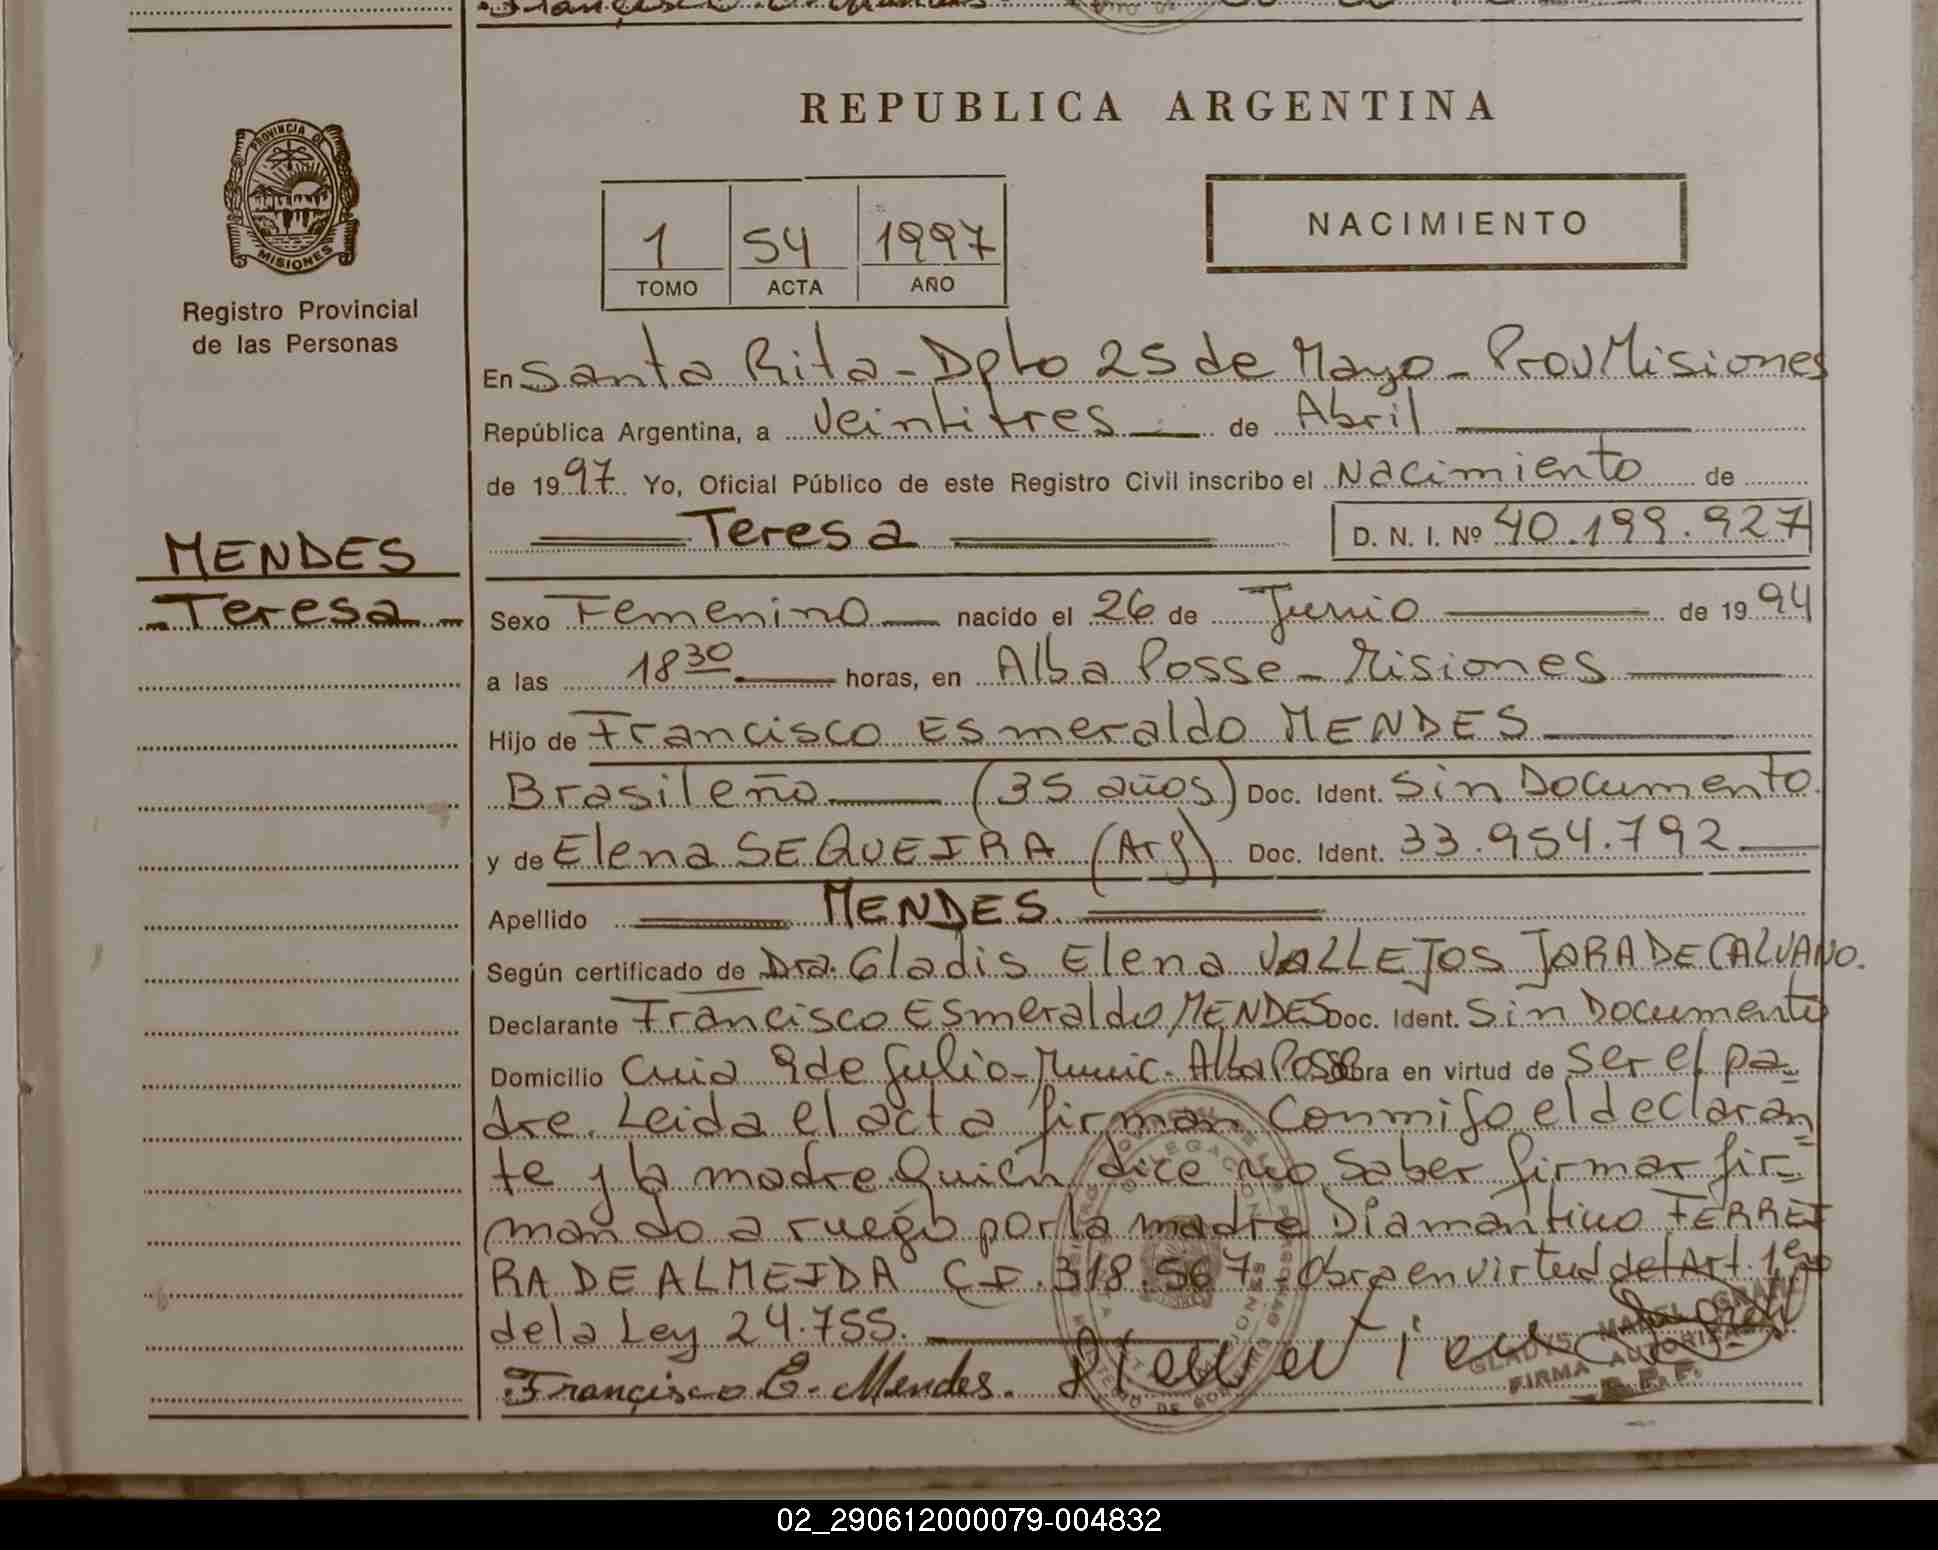 PROVINCIA DE
MISIONES
Registro Provincial
de las Personas
MENDES
Teresa
REPUBLICA ARGENTINA
1 54 1997
TOMO ACTA AÑO
NACIMIENTO
En Santa Rita - Dpto 25 de Mayo - Prov Misiones
República Argentina, a Veintitres de Abril
de 1997 Yo, Oficial Público de este Registro Civil inscribo el Nacimiento de
Teresa D. N. I. Nº 40.199.927
Sexo Femenino nacido el 26 de Junio de 1994
a las 18 30 horas, en Alba Posse - Misiones
Hijo de Francisco Esmeraldo MENDES
Brasileño (35 años) Doc. Ident. Sin Documento
y de Elena SEQUEIRA (Arg) Doc. Ident. 33.954.792
Apellido MENDES
Según certificado de Dra. Gladis Elena VALLEJOS JARA DE CALVANO.
Declarante Francisco Esmeraldo MENDES Doc. Ident. Sin Documento
Domicilio Cuia 9 de Julio - Munic. Alba Posse Obra en virtud de ser el pa-
dre. Leida el acta firman Conmigo el declaran
te y la madre quien dice no saber firmar fir-
mando a ruego por la madre Diamantino FERREI
RA DE ALMEIDA CI. 318.567 - Obra en virtud del Art. 1ero
de la Ley 24.755.
Francisco E. Mendes.
GLADYS
FIRMA AUTORIZADA
02_290612000079-004832